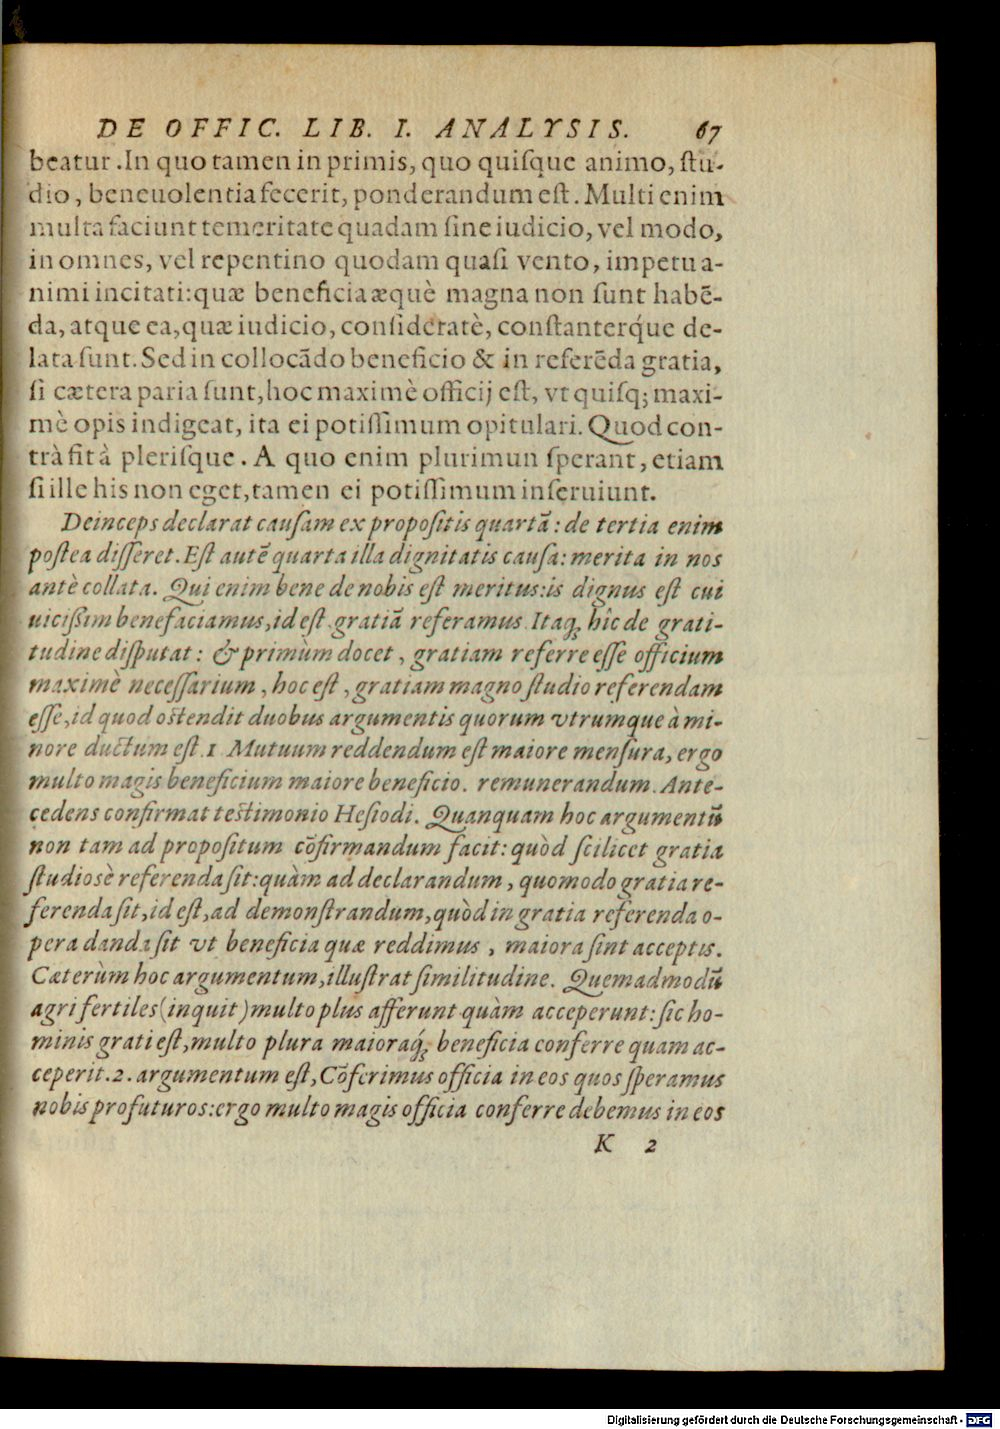 DE OFFIC. LIB. I. ANALYSIS. 67
beatur. In quo tamen in primis, quo quiſque animo, ſtu-
dio, beneuolentia fecerit, ponderandum eſt. Multi enim
multa faciunt temeritate quadam ſine iudicio, vel modo,
in omnes, vel repentino quodam quaſi vento, impetu a-
nimi incitati: quæ beneficia æquè magna non ſunt habē-
da, atque ea, quæ iudicio, conſideratè, conſtanterq́ue de-
lata ſunt. Sed in collocādo beneficio & in referēda gratia,
ſi cætera paria ſunt, hoc maximè officij eſt, vt quiſq; maxi-
mè opis indigeat, ita ei potiſſimum opitulari. Quod con-
trà fit à pleriſque. A quo enim plurimun ſperant, etiam
ſi ille his non eget, tamen ei potiſſimum inſeruiunt.
Deinceps declarat cauſam ex propoſitis quartā: de tertia enim
poſtea diſſeret. Eſt autē quarta illa dignitatis cauſa: merita in nos
antè collata. Qui enim bene de nobis eſt meritus: is dignus eſt cui
uiciſſim benefaciamus, id eſt gratiā referamus. Itaq; hîc de grati-
tudine diſputat: & primùm docet, gratiam referre eſſe officium
maximè neceſſarium, hoc eſt, gratiam magno ſtudio referendam
eſſe, id quod oſtendit duobus argumentis quorum vtrumque à mi-
nore ductum eſt. 1 Mutuum reddendum eſt maiore menſura, ergo
multo magis beneficium maiore beneficio. remunerandum. Ante-
cedens confirmat teſtimonio Heſiodi. Quanquam hoc argumentū
non tam ad propoſitum cōfirmandum facit: quòd ſcilicet gratia
ſtudiosè referenda ſit: quàm ad declarandum, quomodo gratia re-
ferenda ſit, id eſt, ad demonſtrandum, quòd in gratia referenda o-
pera danda ſit vt beneficia quæ reddimus, maiora ſint acceptis.
Cæterùm hoc argumentum, illuſtrat ſimilitudine. Quemadmodū
agri fertiles (inquit) multo plus afferunt quàm acceperunt: ſic ho-
minis grati eſt, multo plura maioraq́; beneficia conferre quam ac-
ceperit. 2. argumentum eſt, Cōferimus officia in eos quos ſperamus
nobis profuturos: ergo multo magis officia conferre debemus in eos
K 2
Digitalisierung gefördert durch die Deutsche Forschungsgemeinschaft - DFG